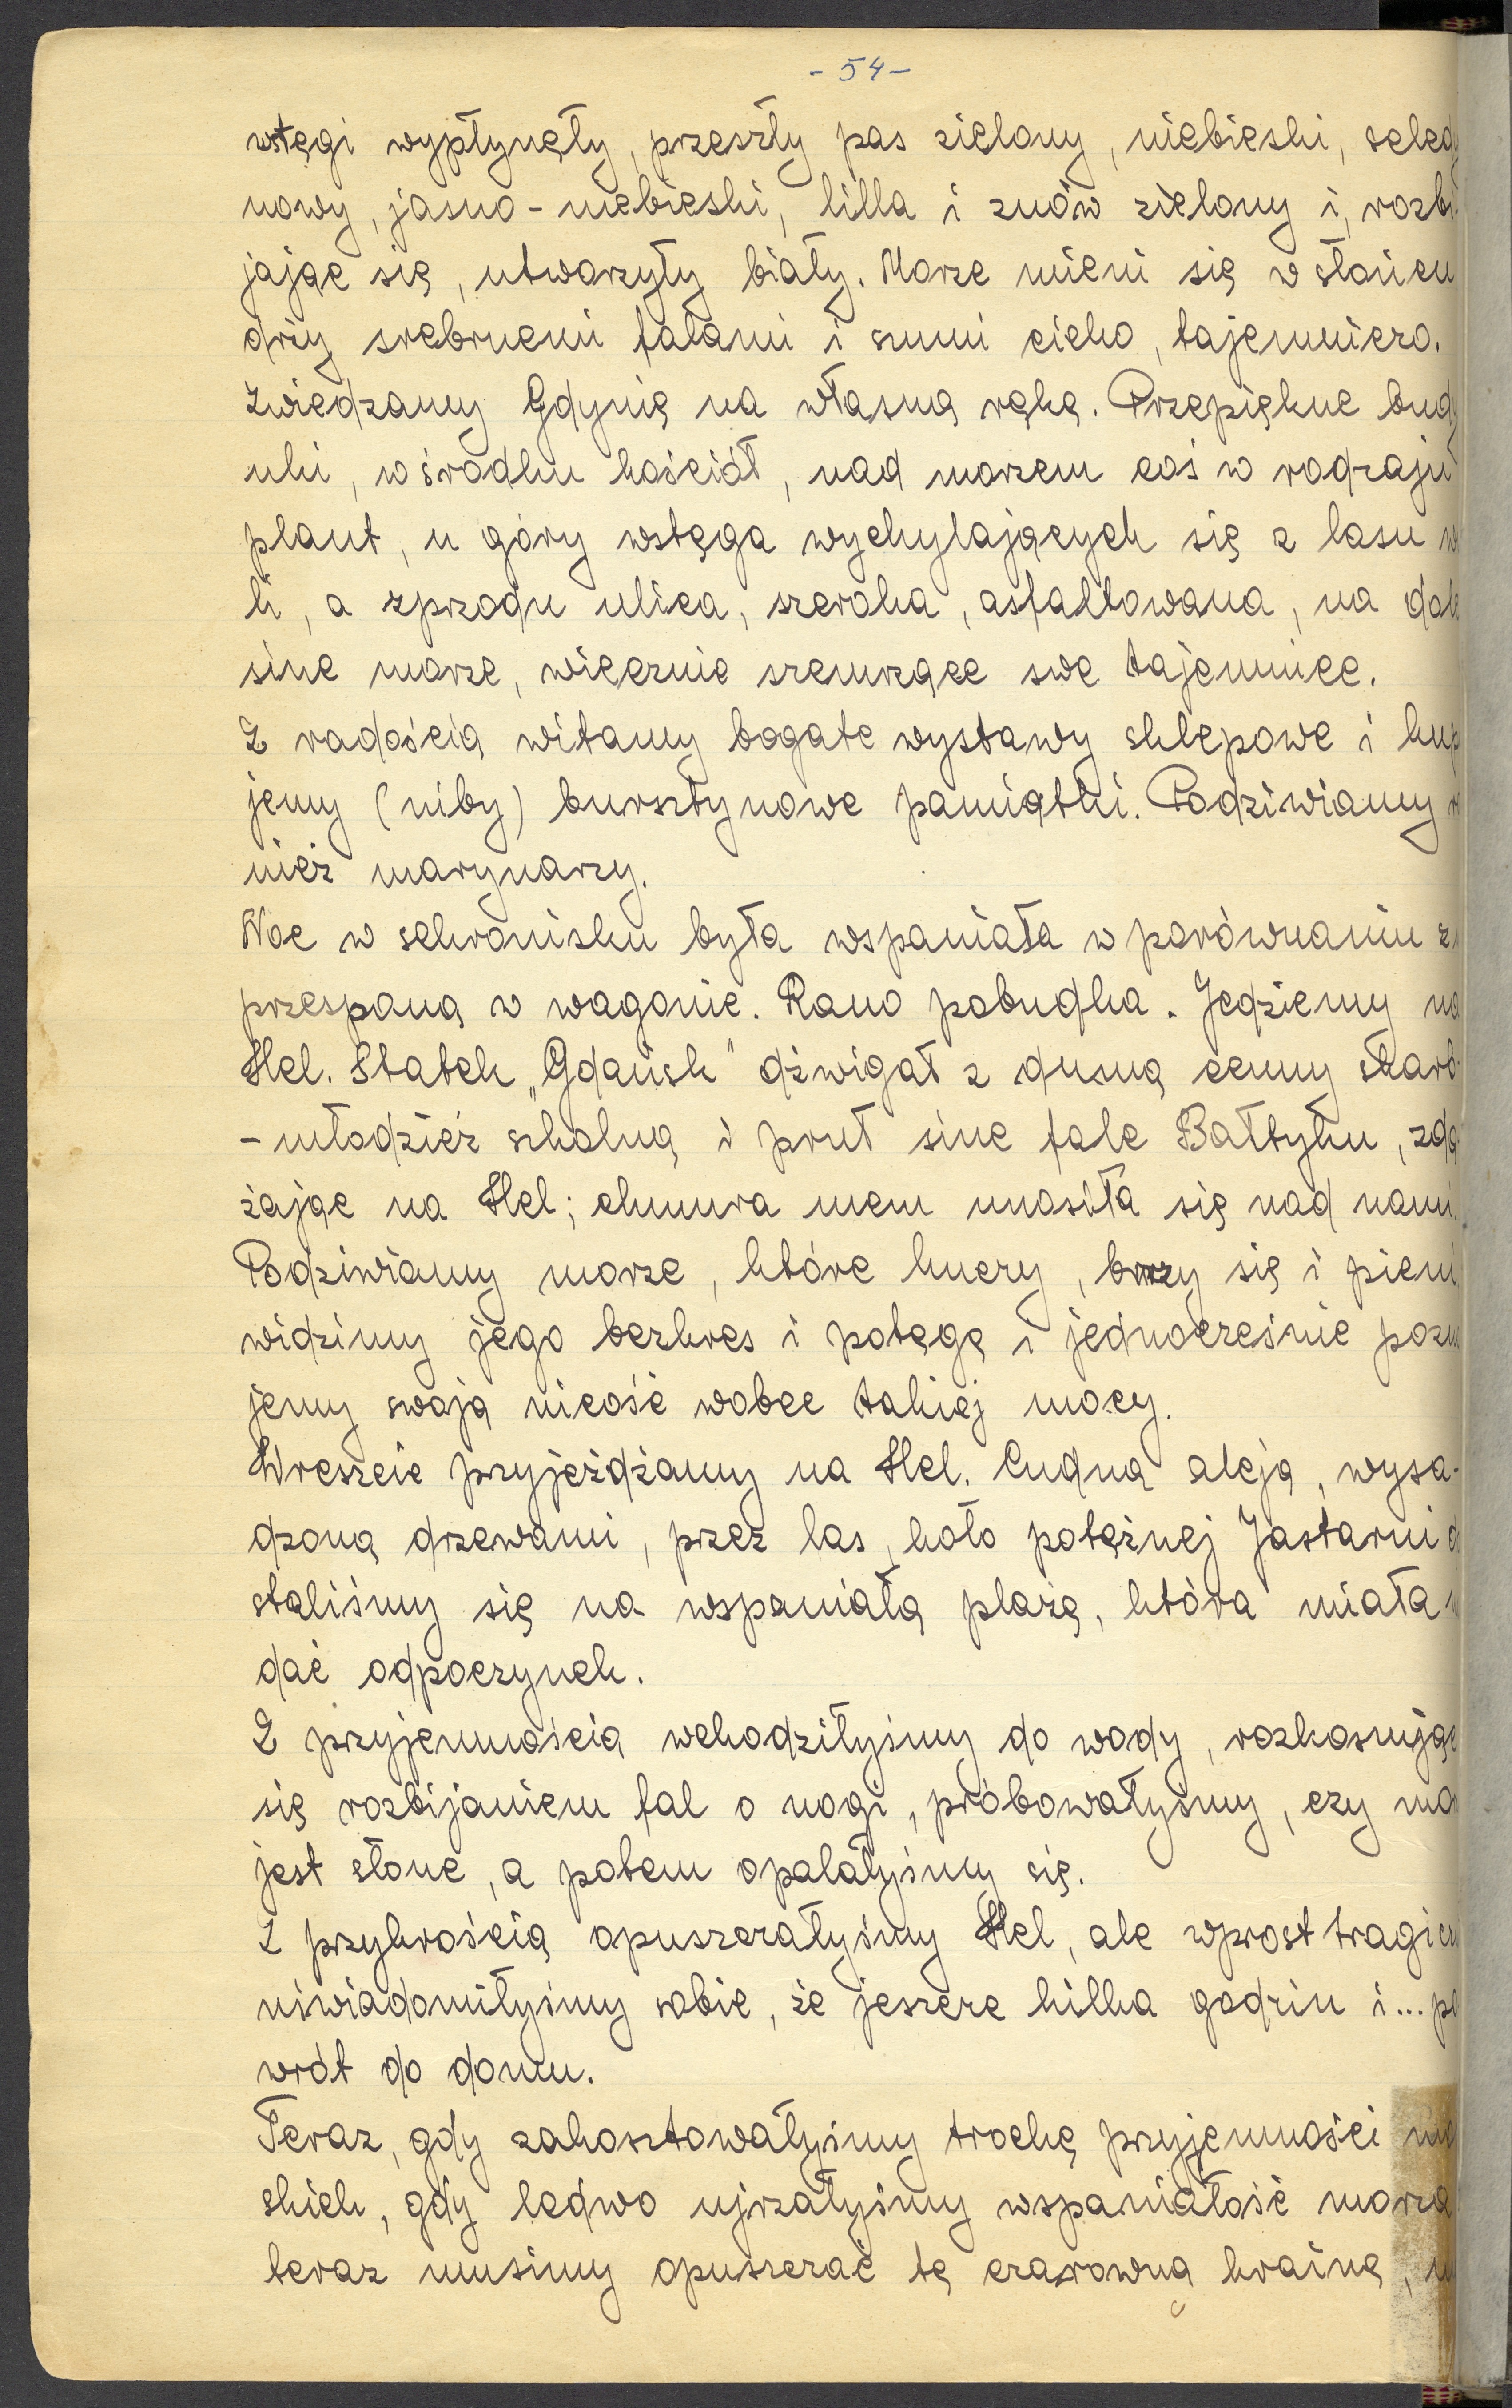 - 54 -
wstęgi wypłynęły, przeszły pas zielony, niebieski, seledy
nowy, jasno-niebieski, lilla i znów zielony i, rozbi
jając się, utworzyły biały. Morze mieni się w słońcu
drży srebrnemi falami i szumi cicho, tajemniczo.
Zwiedzamy Gdynię na własną rękę. Przepiękne budy
nki, w środku kościół, nad morzem coś w rodzaju
plant, u góry wstęga wychylających się z lasu w
li, a zprzodu ulica, szeroka, asfaltowana, na dole
sine morze, wiecznie szemrzące swe tajemnice.
Z radością witamy bogate wystawy sklepowe i kup
jemy (niby) bursztynowe pamiątki. Podziwiamy r
nież marynarzy.
Noc w schronisku była wspaniała w porównaniu z
przespaną w wagonie. Rano pobudka. Jedziemy na
Hel. Statek „Gdańsk" dźwigał z dumą cenny skarb-
- młodzież szkolną i pruł sine fale Bałtyku, zdą
żając na Hel; chmura mew unosiła się nad nami.
Podziwiamy morze, które huczy, burzy się i pieni
widzimy jego bezkres i potęgę i jednocześnie pozn
jemy swoją nicość wobec takiej mocy.
Wreszcie przyjeżdżamy na Hel. Cudną aleją, wysa-
dzoną drzewami, przez las, koło potężnej Jastarni d
staliśmy się na wspaniałą plażę, która miała n
dać odpoczynek.
Z przyjemnością wchodziłyśmy do wody, rozkoszując
się rozbijaniem fal o nogi, próbowałyśmy, czy mor
jest słone, a potem opalałyśmy się.
Z przykrością opuszczałyśmy Hel, ale wprost tragicz
uświadomiłyśmy sobie, że jeszcze kilka godzin i... po
wrót do domu.
Teraz, gdy zakosztowałyśmy trochę przyjemności mo
skich, gdy ledwo ujrzałyśmy wspaniałość morza
teraz musimy opuszczać tę czarowną krainę,